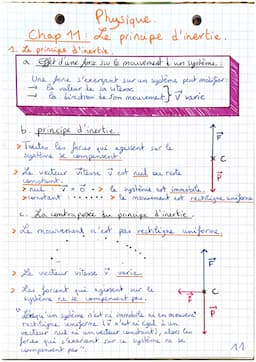 Physique.
Chap 11 : Le principe d'inertie.
1. Le principe d'inertie.
a. Effet d'une force sur le mouvement d'un système.
Une force s'exerçant sur un système peut modifier :
→ la valeur de sa vitesse
→ la direction de son mouvement } v⃗ varie
b. principe d'inertie.
> Toutes les forces qui agissent sur le
système se compensent.
> Le vecteur vitesse v⃗ est nul ou reste
constant.
> nul : v⃗ = 0⃗ → le système est immobile.
> constant : → le mouvement est rectiligne uniforme
F⃗
C
P⃗
c. La contraposée du principe d'inertie.
> Le mouvement n'est pas rectiligne uniforme.
> Le vecteur vitesse v⃗ varie.
> Les forces qui agissent sur le
système ne se compensent pas.
F⃗
C
F⃗
P⃗
"Lorsqu'un système n'est ni immobile ni en mouvement
rectiligne uniforme (v⃗ n'est ni égal à un
vecteur nul ni un vecteur constant), alors les
forces qui s'exercent sur ce système ne se
compensent pas".
11